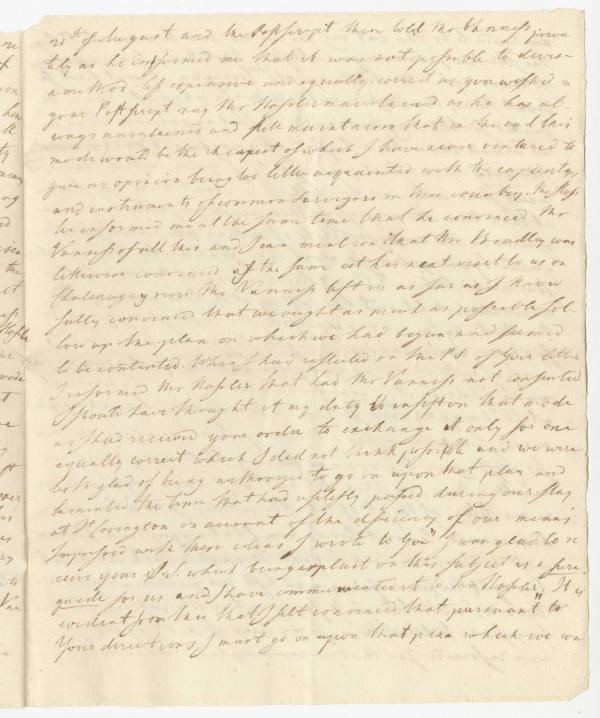 21st of August and the Postscript then told Mr Vanness priva
tely as he informed me that it was not possible to devise
a method less expensive and equally correct as you wished in
your Postscript nay Mr Hassler maintained as he has al
ways maintained and still maintains that in the end this
mode would be the cheapest of which I have never ventured to
give an opinion being too little acquainted with the capacity
and instruments of common Surveyors in this country. Mr Hass
ler informed me at the same time that he convinced Mr
Vanness of all this and I can mention that Mr Bradley was
likewise convinced of the same at his next visit to us on
Chateaugay river Mr Vanness left us as far as I know
fully convinced that we ought as much as possible fol
low up the plan on which we had begun and seemed
to be contented. When I had reflected on the P.S. of your letter
I informed Mr Hassler that had Mr Vanness not consented
I should have thought it my duty to insist on that mode
as I had received your order to exchange it only for one
equally correct which I did not think possible and we were
both glad of being authorized to go on upon that plan and
lamented the time that had uselessly passed during our stay
at Ft Covington on account of the deficiency of our means
Impressed with these ideas I wrote to You "I was glad to re
ceive your P.S. which being explicit on this subject is a sure
guide for us and I have communicated it to Mr Hassler". It is
evident from this that I felt convinced that pursuant to
Your directions, I must go on upon that plan which we